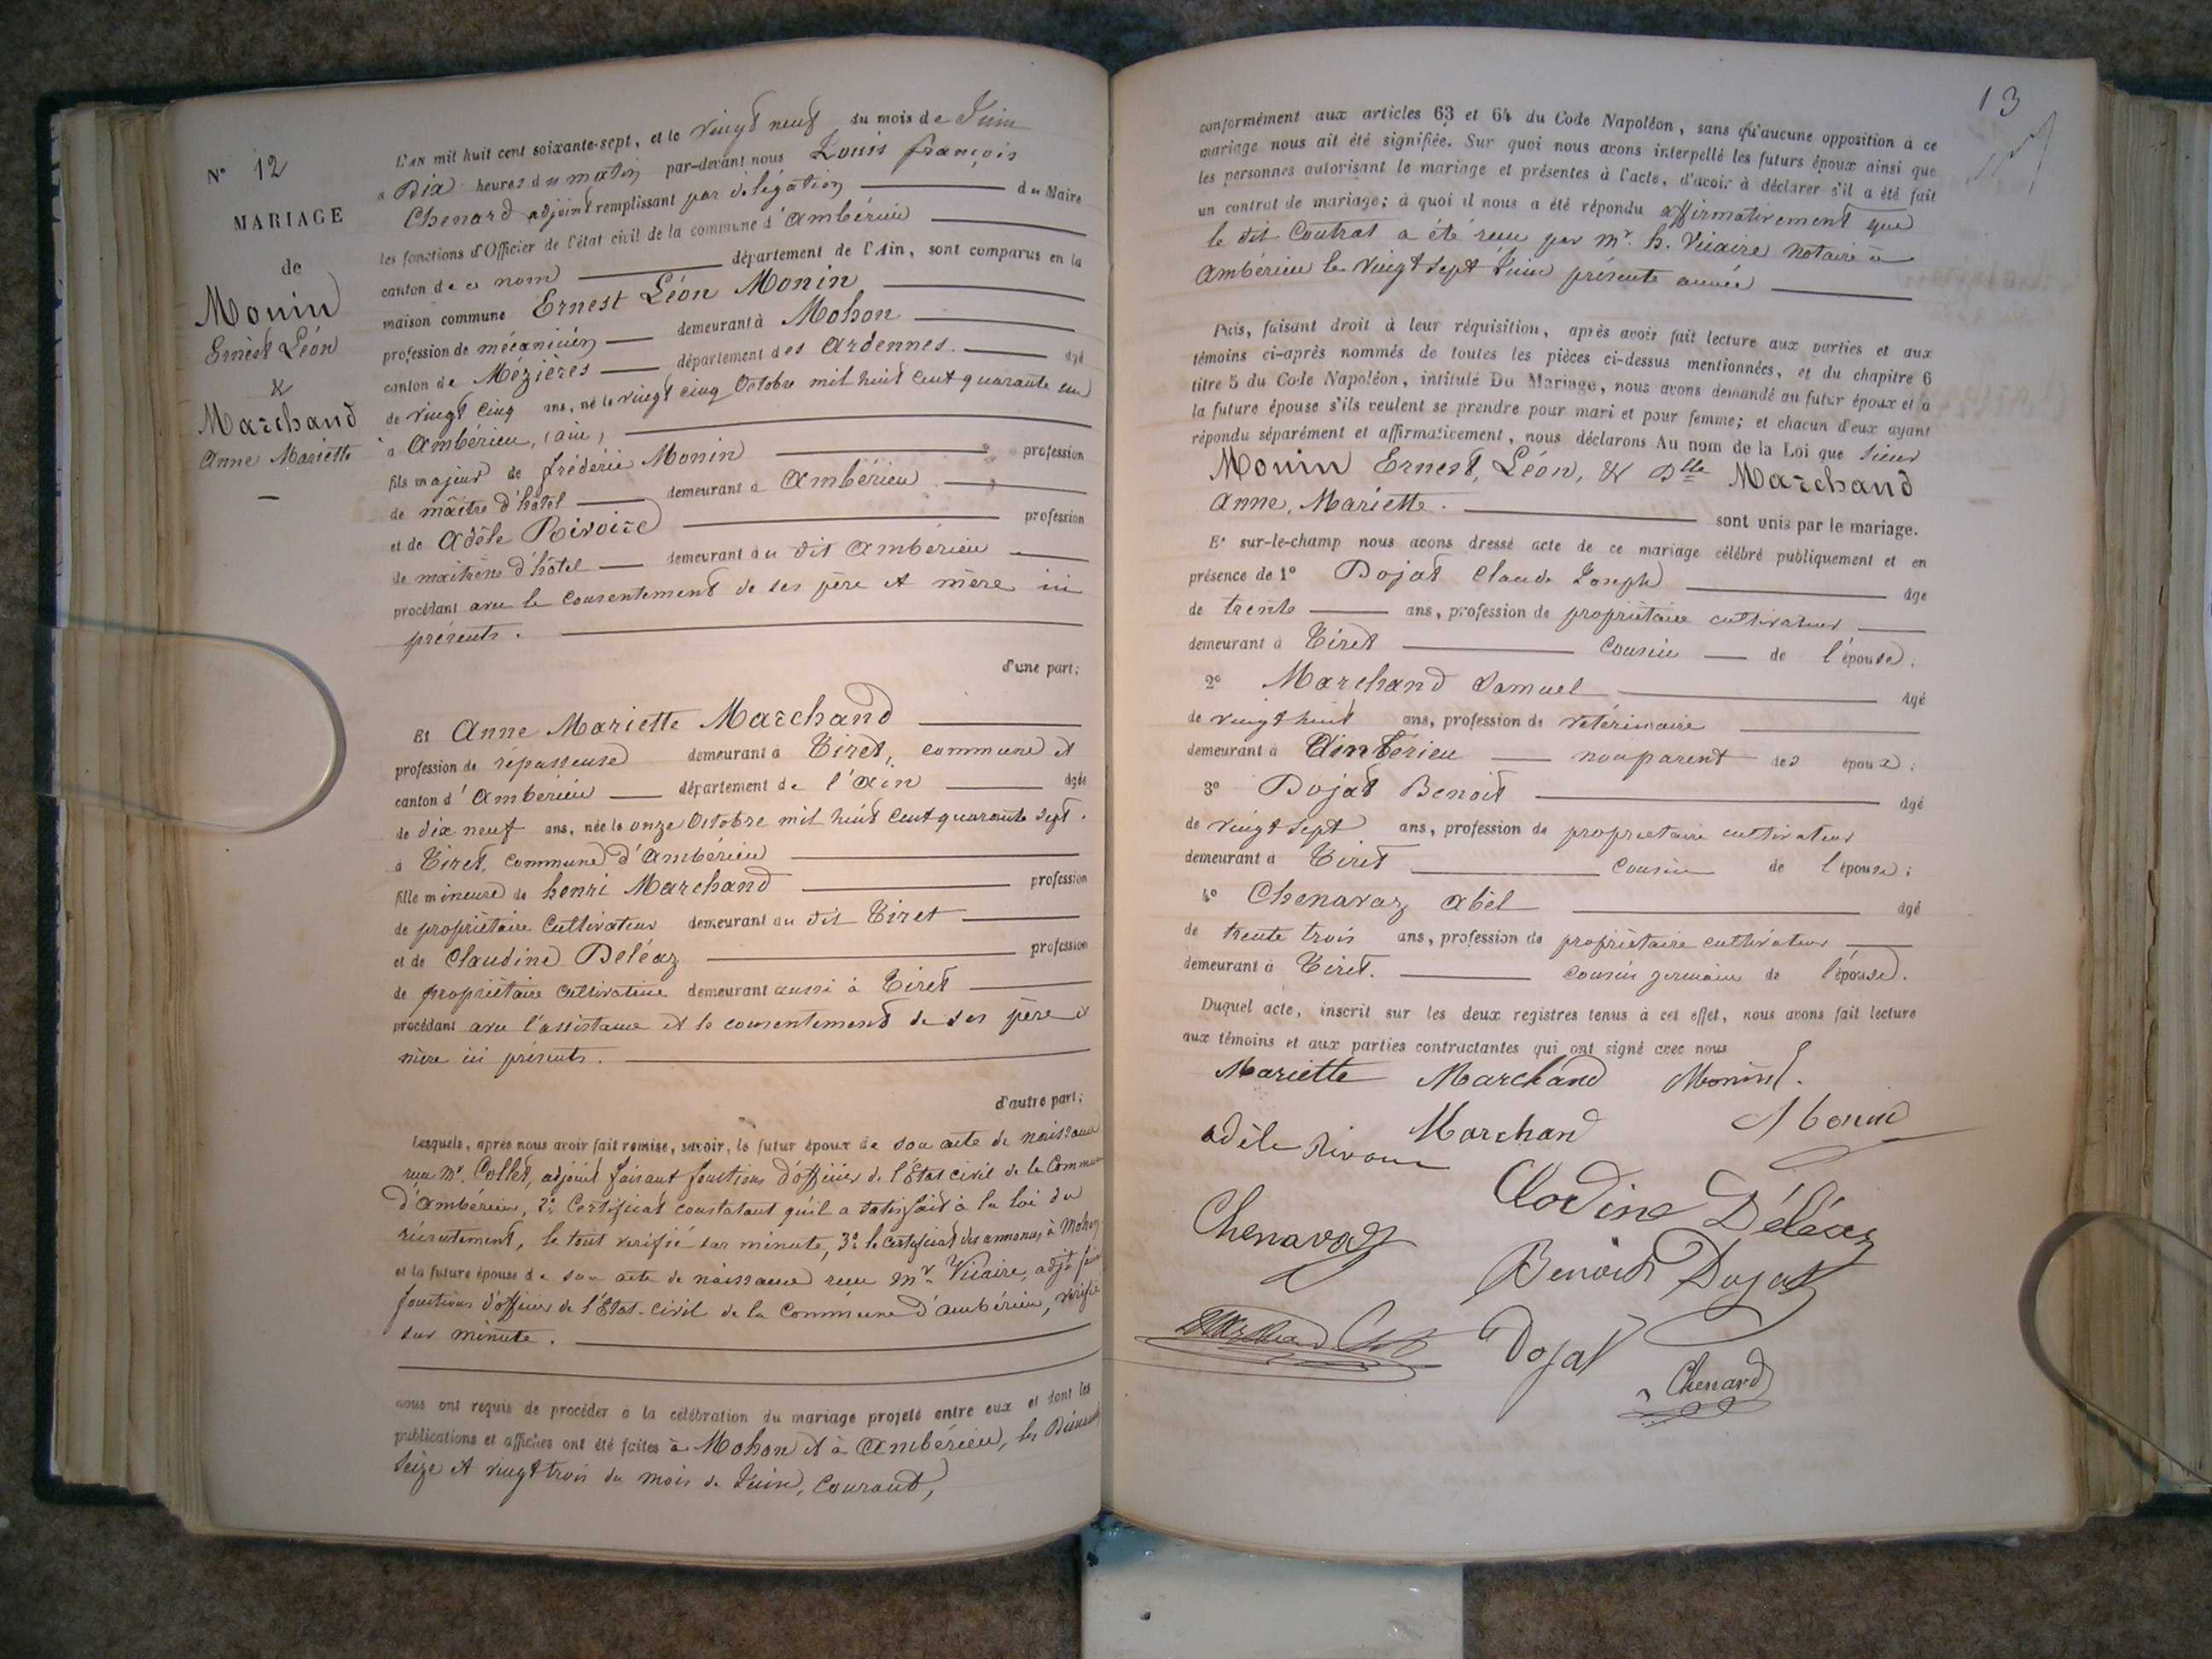 N° 12
MARIAGE
de
Monin
Ernest Léon
&
Marchand
Anne Mariette
L'AN mil huit cent soixante-sept, et le vingt neuf du mois de Juin
à Dix heures du matin par-devant nous Louis françois
Chenard adjoint remplissant par délégation du Maire
les fonctions d'Officier de l'état civil de la commune d'Ambérieu
canton de ce nom département de l'Ain, sont comparus en la
maison commune Ernest Léon Monin
profession de mécanicien demeurant à Mohon
canton de Mézières département des Ardennes. âgé
de vingt cinq ans, né le vingt cinq Octobre mil huit cent quarante un
à Ambérieu, (ain)
fils majeur de frédéric Monin profession
de maître d'hôtel demeurant à Ambérieu
et de Adèle Rivoire profession
de maitresse d'hôtel demeurant au dit Ambérieu
procédant avec le consentement de ses père et mère ici
présents.
d'une part;
Et Anne Mariette Marchand
profession de répasseuse demeurant à Tiret, commune et
canton d'Ambérieu département de l'Ain âgée
de dix neuf ans, née le onze Octobre mil huit cent quarante sept.
à Tiret, commune d'Ambérieu
fille mineure de henri Marchand profession
de propriétaire Cultivateur demeurant au dit Tiret
et de Claudine Deléaz profession
de propriétaire Cultivatrice demeurant aussi à Tiret
procédant avec l'assistance et le consentement de ses père et
mère ici présents.
d'autre part;
Lesquels, après nous avoir fait remise, savoir, le futur époux de son acte de naissance
reçu Mr. Collet, adjoint faisant fonctions d'officier de l'État civil de la Commune
d'Ambérieu, 2° Certificat constatant qu'il a satisfait à la loi du
récrutement, le tout vérifié sur minute, 3° le certificat des annonces à Mohon
et la future épouse de son acte de naissance reçu Mr. Vicaire, adjt fais
fonctions d'officier de l'État-civil de la Commune d'ambérieu, vérifié
sur minute.
nous ont requis de procéder à la célébration du mariage projeté entre eux et dont les
publications et affiches ont été faites à Mohon et à Ambérieu, les Dimanches
Seize et vingt trois du mois de Juin, courant,
13
conformément aux articles 63 et 64 du Code Napoléon, sans qu'aucune opposition à ce
mariage nous ait été signifiée. Sur quoi nous avons interpellé les futurs époux ainsi que
les personnes autorisant le mariage et présentes à l'acte, d'avoir à déclarer s'il a été fait
un contrat de mariage; à quoi il nous a été répondu affirmativement que
le dit Contrat a été reçu par Mr. h. Vicaire Notaire à
Ambérieu le vingt sept Juin présente année
Puis, faisant droit à leur réquisition, après avoir fait lecture aux parties et aux
témoins ci-après nommés de toutes les pièces ci-dessus mentionnées, et du chapitre 6
titre 5 du Code Napoléon, intitulé Du Mariage, nous avons demandé au futur époux et à
la future épouse s'ils veulent se prendre pour mari et pour femme; et chacun d'eux ayant
répondu séparément et affirmativement, nous déclarons Au nom de la Loi que Sieur
Monin Ernest, Léon, & Dlle Marchand
Anne, Mariette. sont unis par le mariage.
Et sur-le-champ nous avons dressé acte de ce mariage célébré publiquement et en
présence de 1° Dojat Claude Joseph âgé
de trente ans, profession de propriétaire cultivateur
demeurant à Tiret cousin de l'épouse;
2° Marchand Samuel âgé
de vingt huit ans, profession de vétérinaire
demeurant à Ambérieu non parent des époux;
3° Dojat Benoit âgé
de vingt sept ans, profession de propriétaire cultivateur
demeurant à Tiret cousin de l'épouse;
4° Chenavaz Abel âgé
de trente trois ans, profession de propriétaire cultivateur
demeurant à Tiret. cousin germain de l'épouse.
Duquel acte, inscrit sur les deux registres tenus à cet effet, nous avons fait lecture
aux témoins et aux parties contractantes qui ont signé avec nous
Mariette Marchand Monin
adèle Rivoire Marchand Monin
Clodine Déléaz
Chenavaz
Benoit Dojat
Marchand
Dojat
Chenard